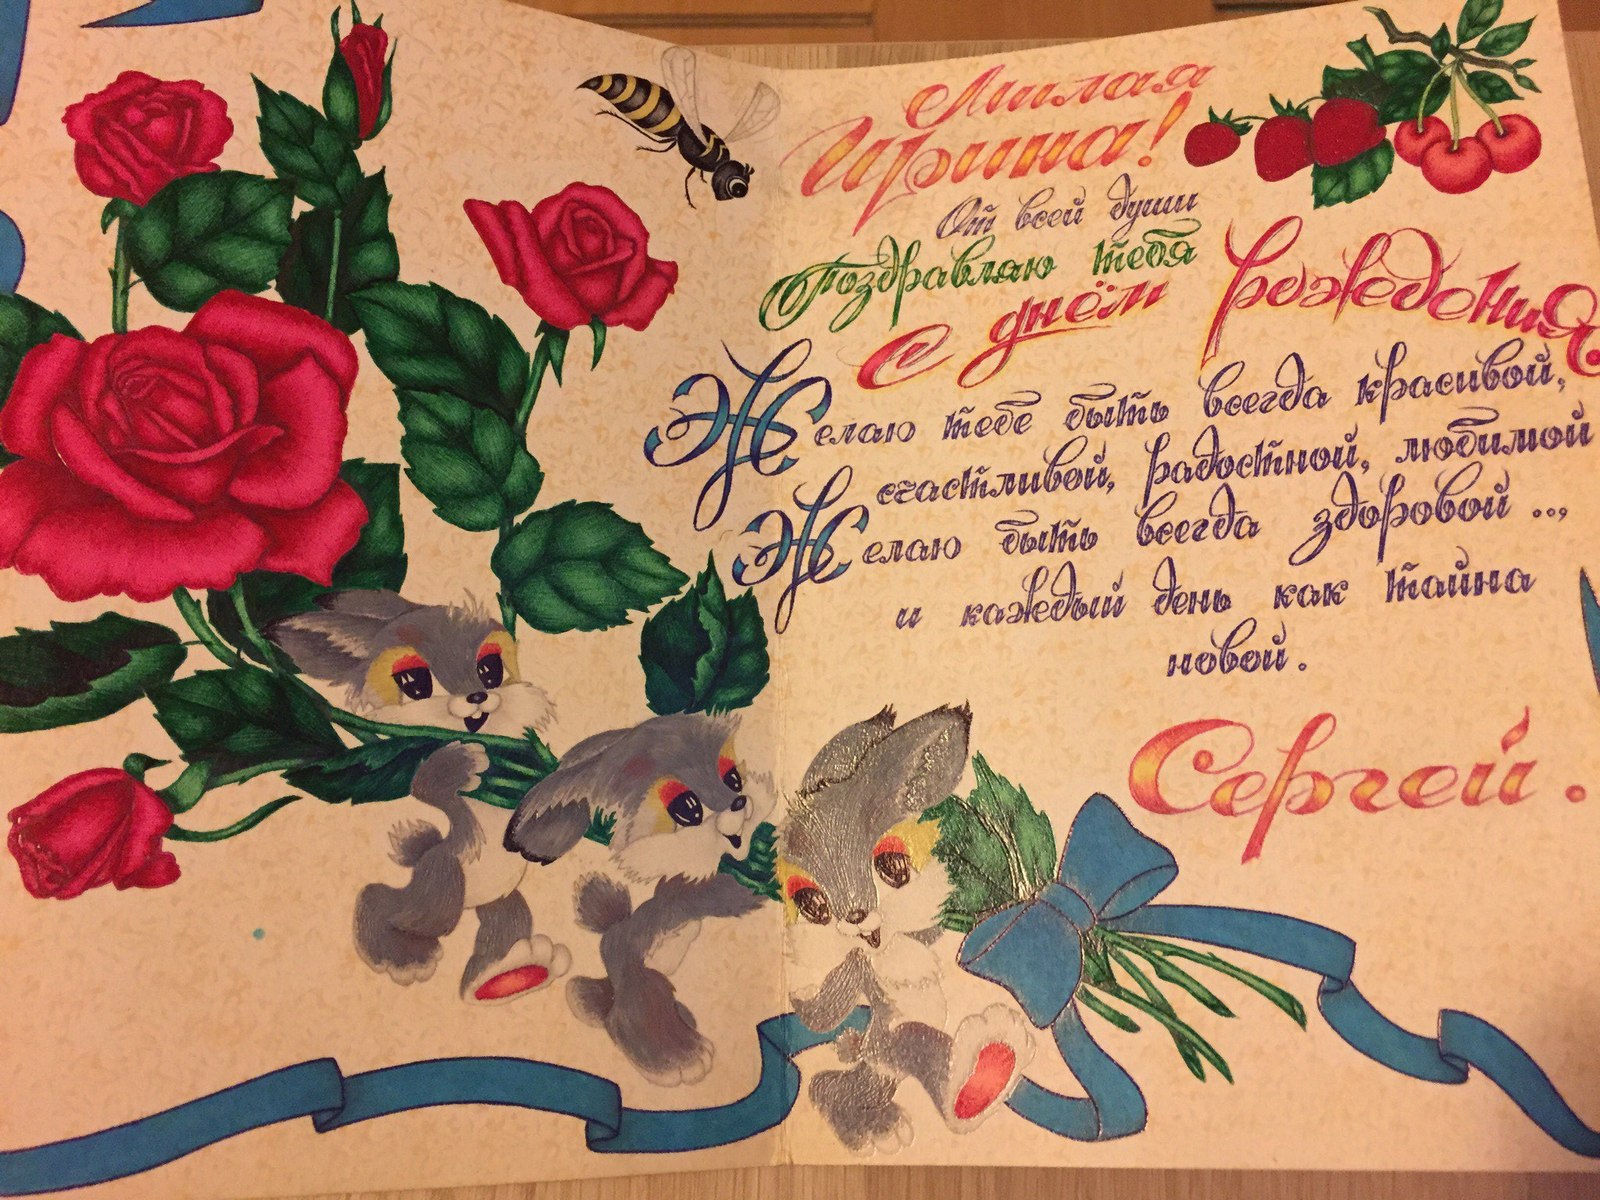 Милая
Ирина!
От всей души
Поздравляю тебя
С днём рождения.
Желаю тебе быть всегда красивой,
счастливой, радостной, любимой
Желаю быть всегда здоровой ...,
и каждый день как тайна
новой.
Сергей.